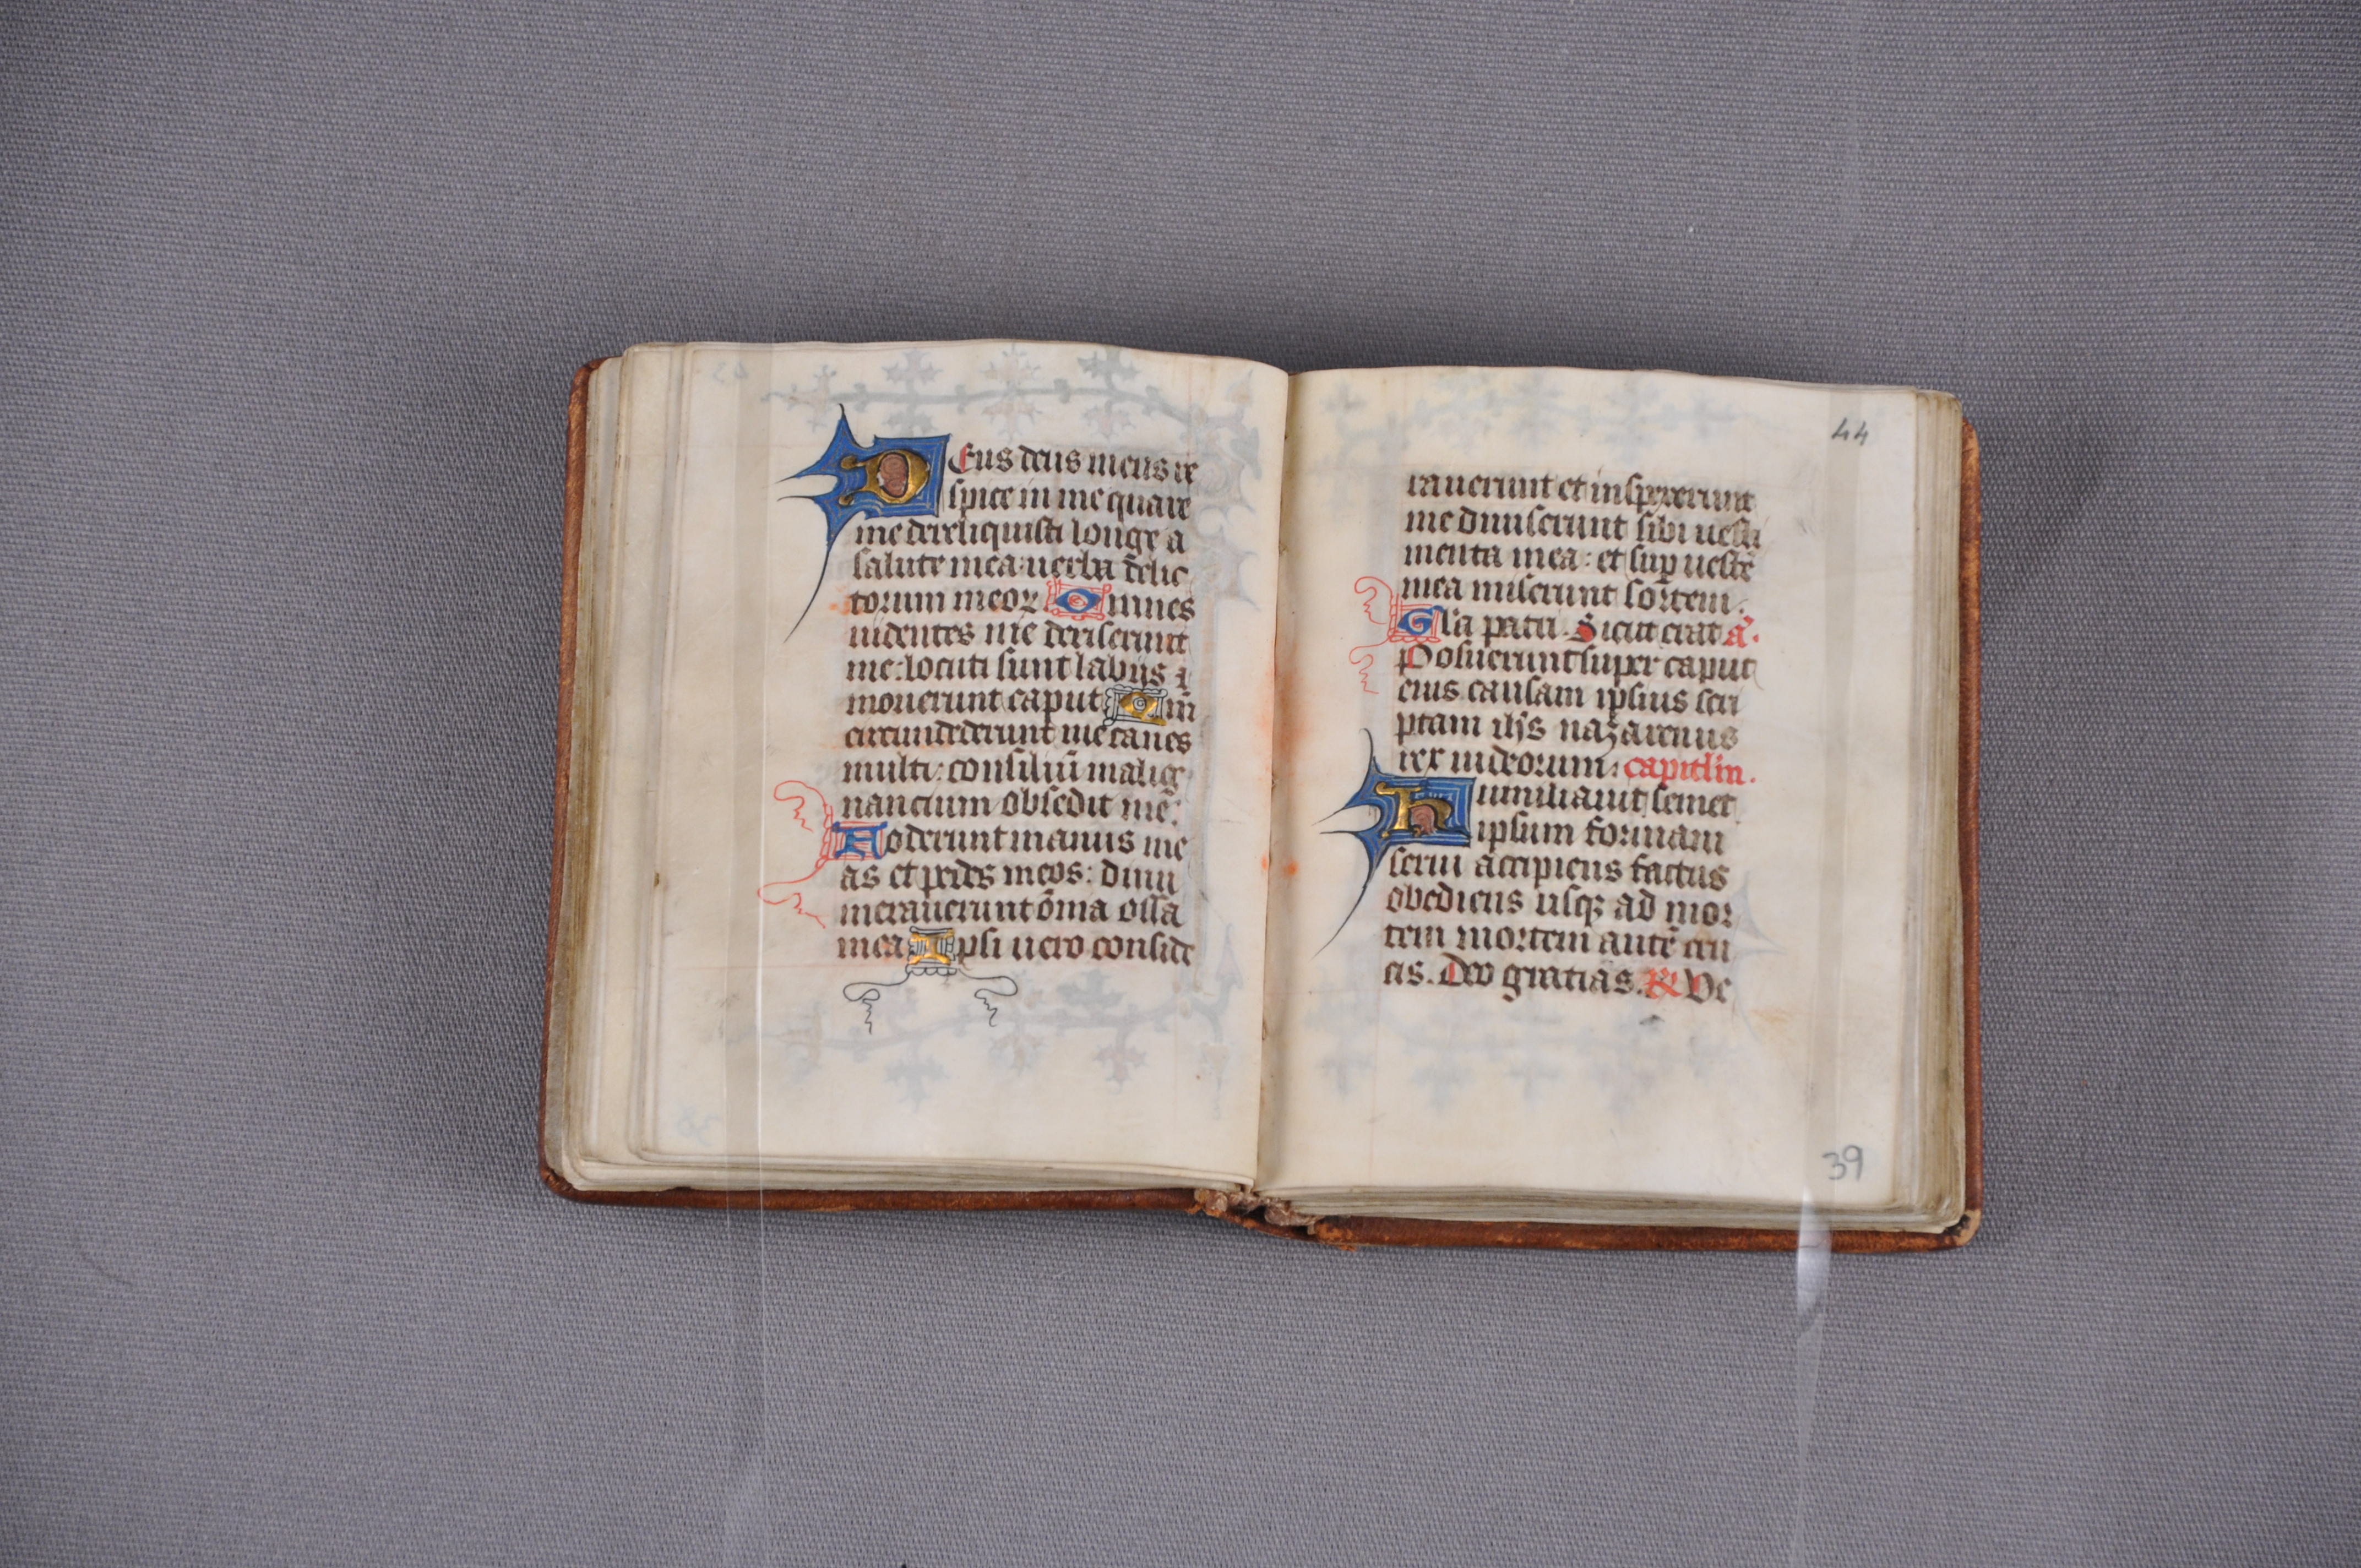 Deus deus meus re
spice in me quare
me dereliquisti longe a
salute mea: uerba delic
torum meoꝝ Omnes
uidentes me deriserunt
me: locuti sunt labijs ⁊
mouerunt caput Qm̄
circumdederunt me canes
multi: consiliū malig
nancium obsedit me:
Foderunt manus me
as et pedes meos: dinu
merauerunt om̄ia ossa
mea Ipsi uero conside
44
rauerunt et inspexerunt
me diuiserunt sibi uesti
menta mea: et sup uestē
mea miserunt sortem.
Gl'a patri. Sicut erat a.
Posuerunt super caput
eius causam ipsius scri
ptam ih's nazarenus
rex iudeorum: capitlm.
Humiliauit semet
ipsum formam
serui accipiens factus
obediens usqꝫ ad mor
tem mortem autē cru
cis. Deo gratias. ℟ Ve
39